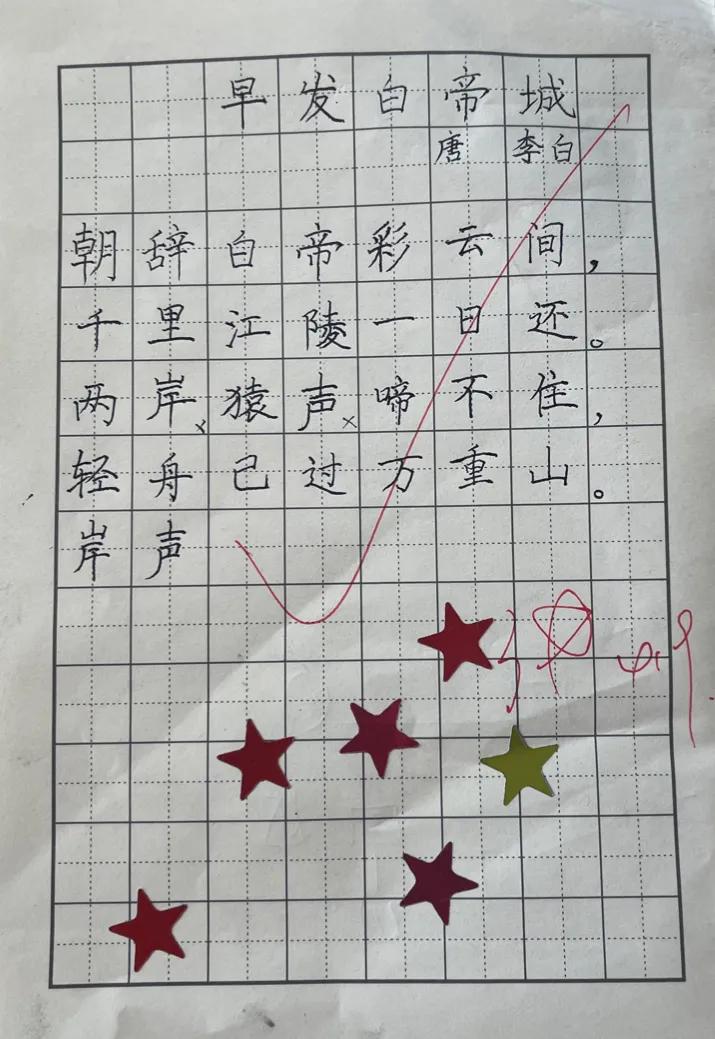 早发白帝城
唐 李白
朝辞白帝彩云间，
千里江陵一日还。
两岸×猿声×啼不住，
轻舟已过万重山。
岸声